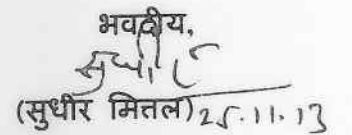 भवदीय,
सुधीर
(सुधीर मित्तल) 25.11.13